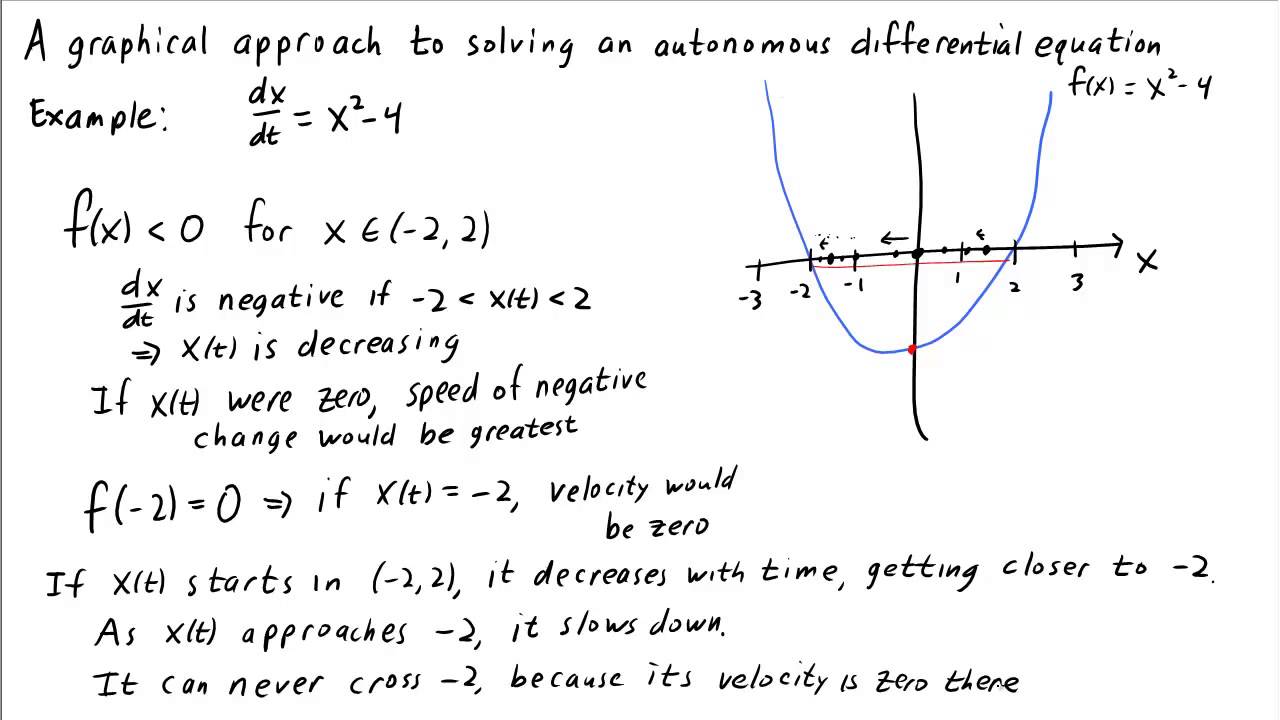 A graphical approach to solving an autonomous differential equation
f(x) = x² - 4
Example: dx/dt = x² - 4
f(x) < 0 for x ∈ (-2, 2)
dx/dt is negative if -2 < x(t) < 2
⇒ x(t) is decreasing
If x(t) were zero, speed of negative
change would be greatest
f(-2) = 0 ⇒ if x(t) = -2, velocity would
be zero
If x(t) starts in (-2, 2), it decreases with time, getting closer to -2.
As x(t) approaches -2, it slows down.
It can never cross -2, because its velocity is zero there
-3 -2 -1 1 2 3 x